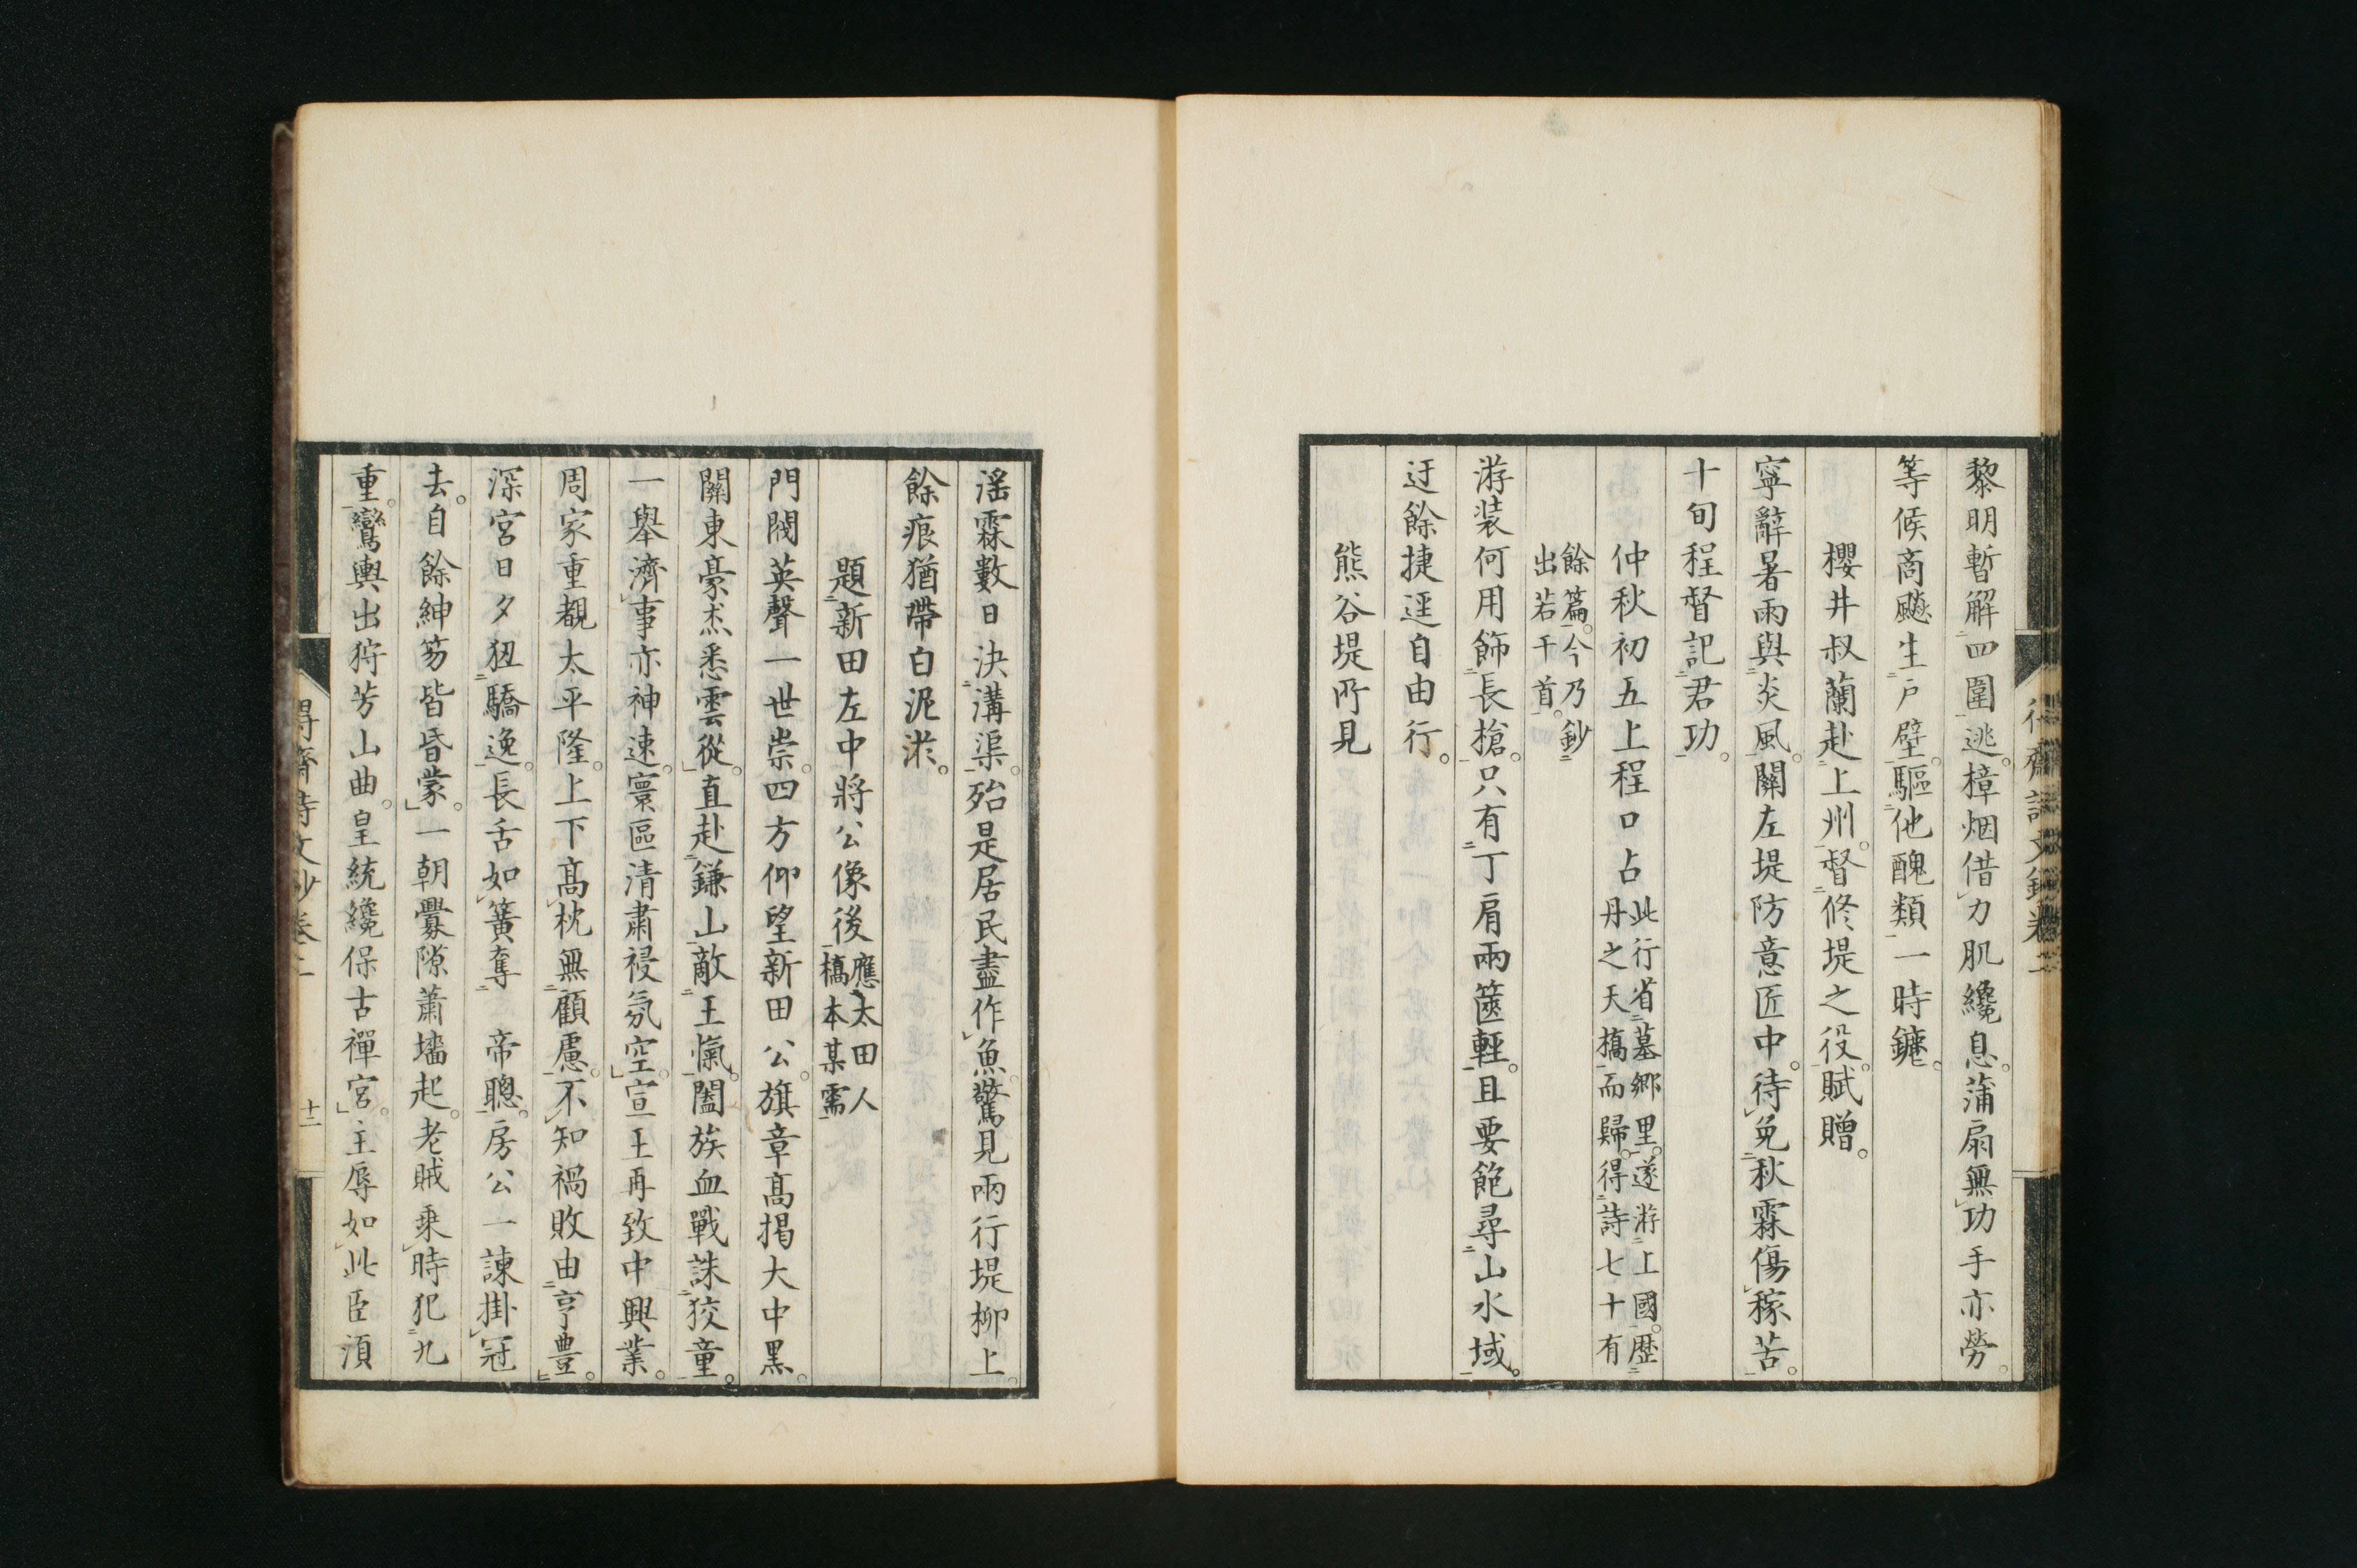 黎明暫解四圍逃。樟烟借力肌纔息。蒲扇無功手亦勞。
等候商飈生戸壁。驅他醜類一時鏖。
櫻井叔蘭赴上州。督修堤之役。賦贈。
寧辭暑雨與炎風。關左堤防意匠中。待免秋霖傷稼苦。
十旬程督記君功。
仲秋初五上程口占
此行省墓郷里。遂游上國。歴
丹之天橋而歸。得詩七十有
餘篇。今乃鈔
出若干首。
游装何用飾長槍。只有丁肩兩篋輕。且要飽尋山水域。
迂餘捷逕自由行。
熊谷堤所見
淫霖數日決溝渠。殆是居民盡作魚。驚見兩行堤柳上。
餘痕猶帶白泥淤。
題新田左中將公像後
應太田人
橋本某需
門閥英聲一世崇。四方仰望新田公。旗章高掲大中黒。
關東豪杰悉雲從。直赴鎌山敵王愾。闔族血戰誅狡童。
一舉濟事亦神速。寰區清肅祲氛空。宣王再致中興業。
周家重覩太平隆。上下高枕無顧慮。不知禍敗由亨豊。
深宮日夕狃驕逸。長舌如簧奪 帝聰。房公一諫掛冠
去。自餘紳笏皆昏蒙。一朝釁隙蕭墻起。老賊乗時犯九
重。鸞輿出狩芳山曲。皇統纔保古禪宮。主辱如此臣須
得齋詩文鈔卷二
十二